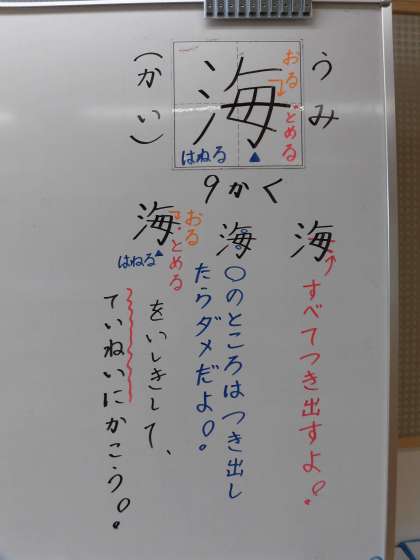 うみ
海
(かい)
おる
とめる
はねる
9かく
海
すべてつき出すよ!
海
○のところはつき出し
たらダメだよ!
海
おる
とめる
はねる
をいしきして、
ていねいにかこう!